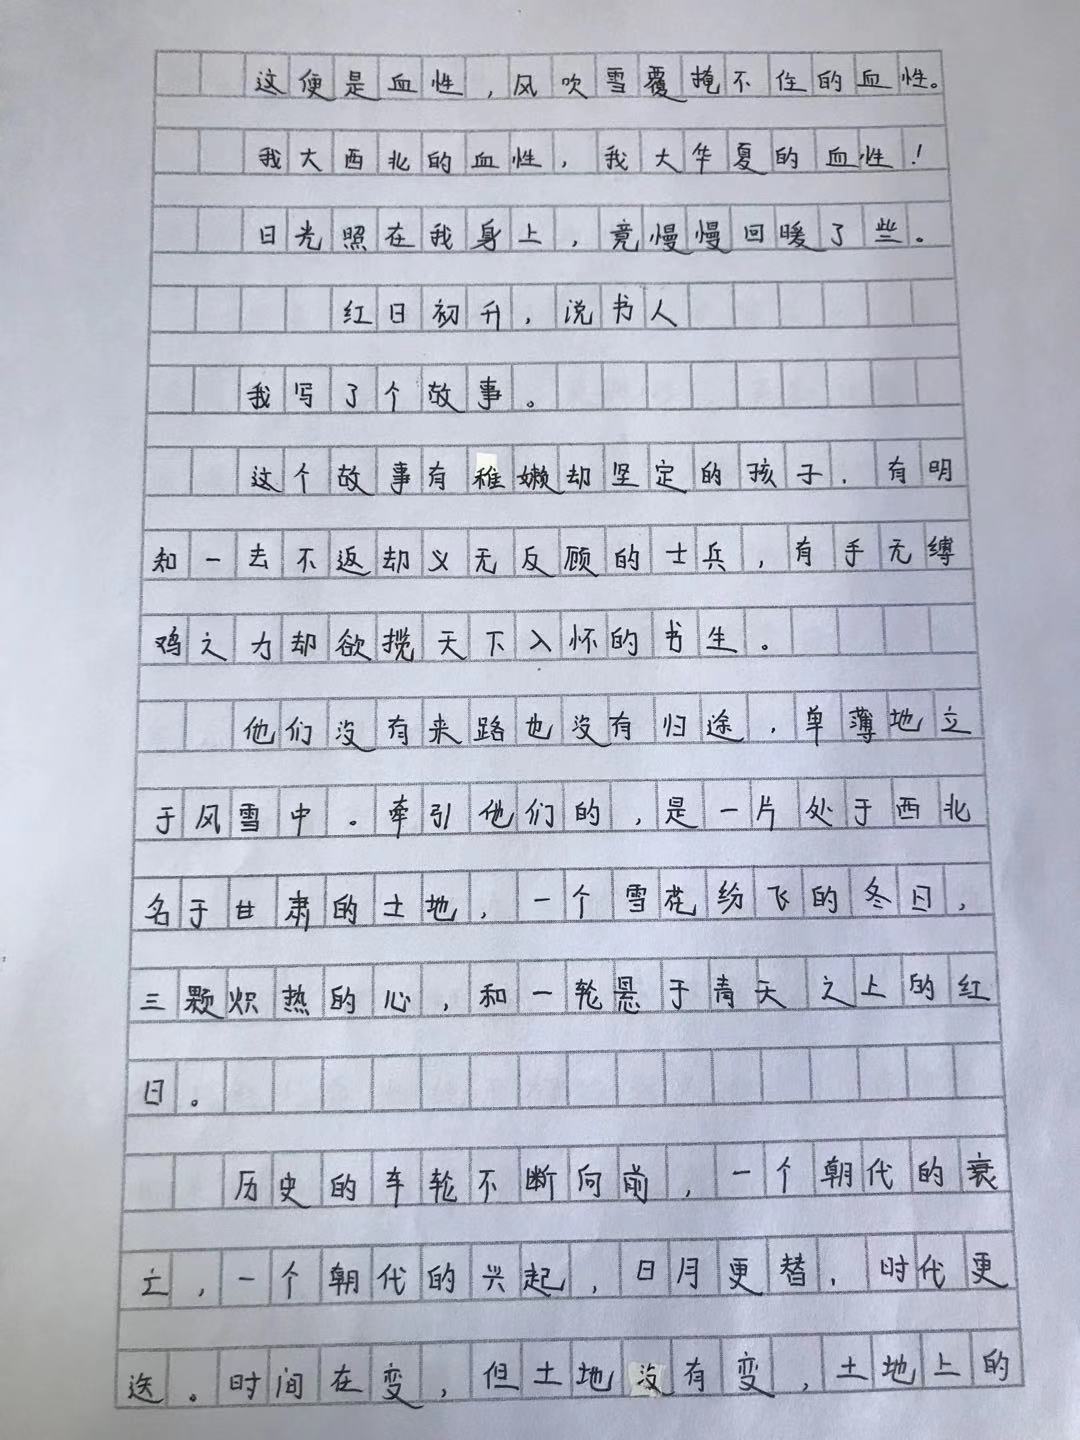 这便是血性，风吹雪覆掩不住的血性。
我大西北的血性，我大华夏的血性！
日光照在我身上，竟慢慢回暖了些。
红日初升，说书人
我写了个故事。
这个故事有稚嫩却坚定的孩子，有明
知一去不返却义无反顾的士兵，有手无缚
鸡之力却欲揽天下入怀的书生。
他们没有来路也没有归途，单薄地立
于风雪中。牵引他们的，是一片处于西北
名于甘肃的土地，一个雪花纷飞的冬日，
三颗炽热的心，和一轮悬于青天之上的红
日。
历史的车轮不断向前，一个朝代的衰
亡，一个朝代的兴起，日月更替，时代更
迭。时间在变，但土地没有变，土地上的